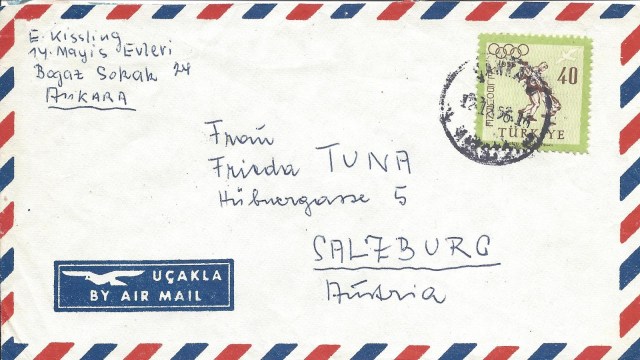 E. Kissling
14. Mayis Evleri
Bogaz Sokak 24
ANKARA
40
TÜRKİYE
Frau
Frieda TUNA
Hübnergasse 5
SALZBURG
Austria
UÇAKLA
BY AIR MAIL